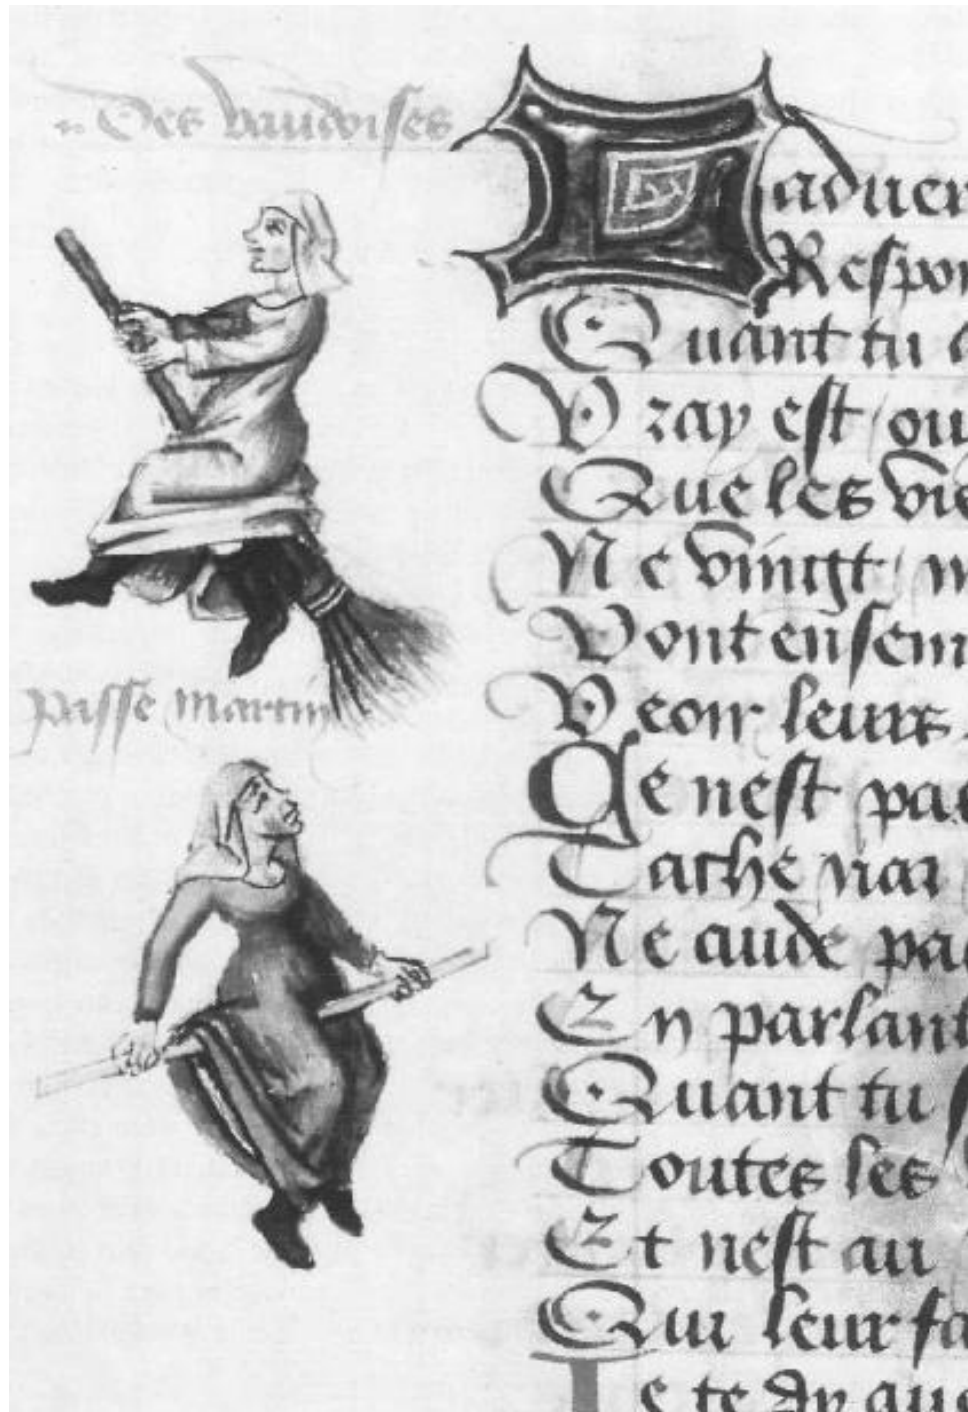 Des vaudoises
Passe martin
Laduer
Respon
Quant tu
Vray est / ou
Que les vie
Ne vingt / m
Vont ensem
Veoir leurs
Ce nest pas
Tache
Ne cuide pas
En parlant
Quant tu
Toutes les
Et nest au
Qui leur fa
Je te dy que